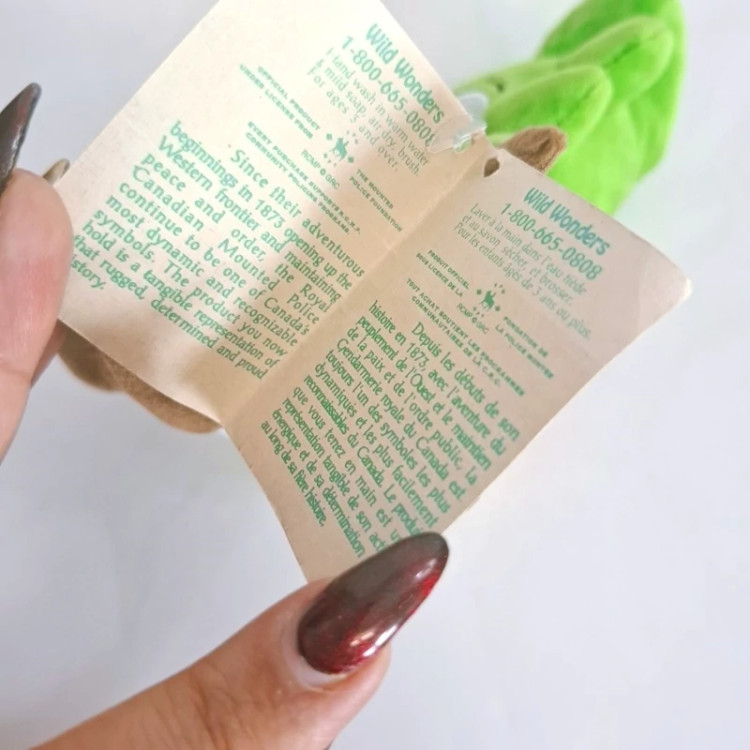 Wild Wonders
1-800-665-080
Hand wash in warm water
& mild soap, air dry, brush.
For ages 3 and over.
OFFICIAL PRODUCT
UNDER LICENSE FROM
RCMP GRC
THE MOUNTED
POLICE FOUNDATION
EVERY PURCHASE SUPPORTS R.C.M.P.
COMMUNITY POLICING PROGRAMS.
Since their adventurous
beginnings in 1873 opening up the
Western frontier and maintaining
peace and order, the Royal
Canadian Mounted Police
continue to be one of Canada's
most dynamic and recognizable
symbols. The product you now
hold is a tangible representation of
that rugged, determined and proud
story.
Wild Wonders
1-800-665-0808
Laver à la main dans l'eau tiède
et au savon, sécher, et brosser.
Pour les enfants agés de 3 ans ou plus.
PRODUIT OFFICIEL
SOUS LICENCE DE LA
RCMP GRC
FONDATION DE
LA POLICE MONTÉE
TOUT ACHAT SOUTIENT LES PROGRAMMES
COMMUNAUTAIRES DE LA G.R.C.
Depuis les débuts de son
histoire en 1873, avec l'aventure du
peuplement de l'Ouest et le maintien
de la paix et de l'ordre public, la
Gendarmerie royale du Canada est
toujours l'un des symboles les plus
dynamiques et les plus facilement
reconnaissables du Canada. Le produit
que vous tenez en main est
représentation tangible de son
énergique et de sa détermination
au long de sa fière histoire.